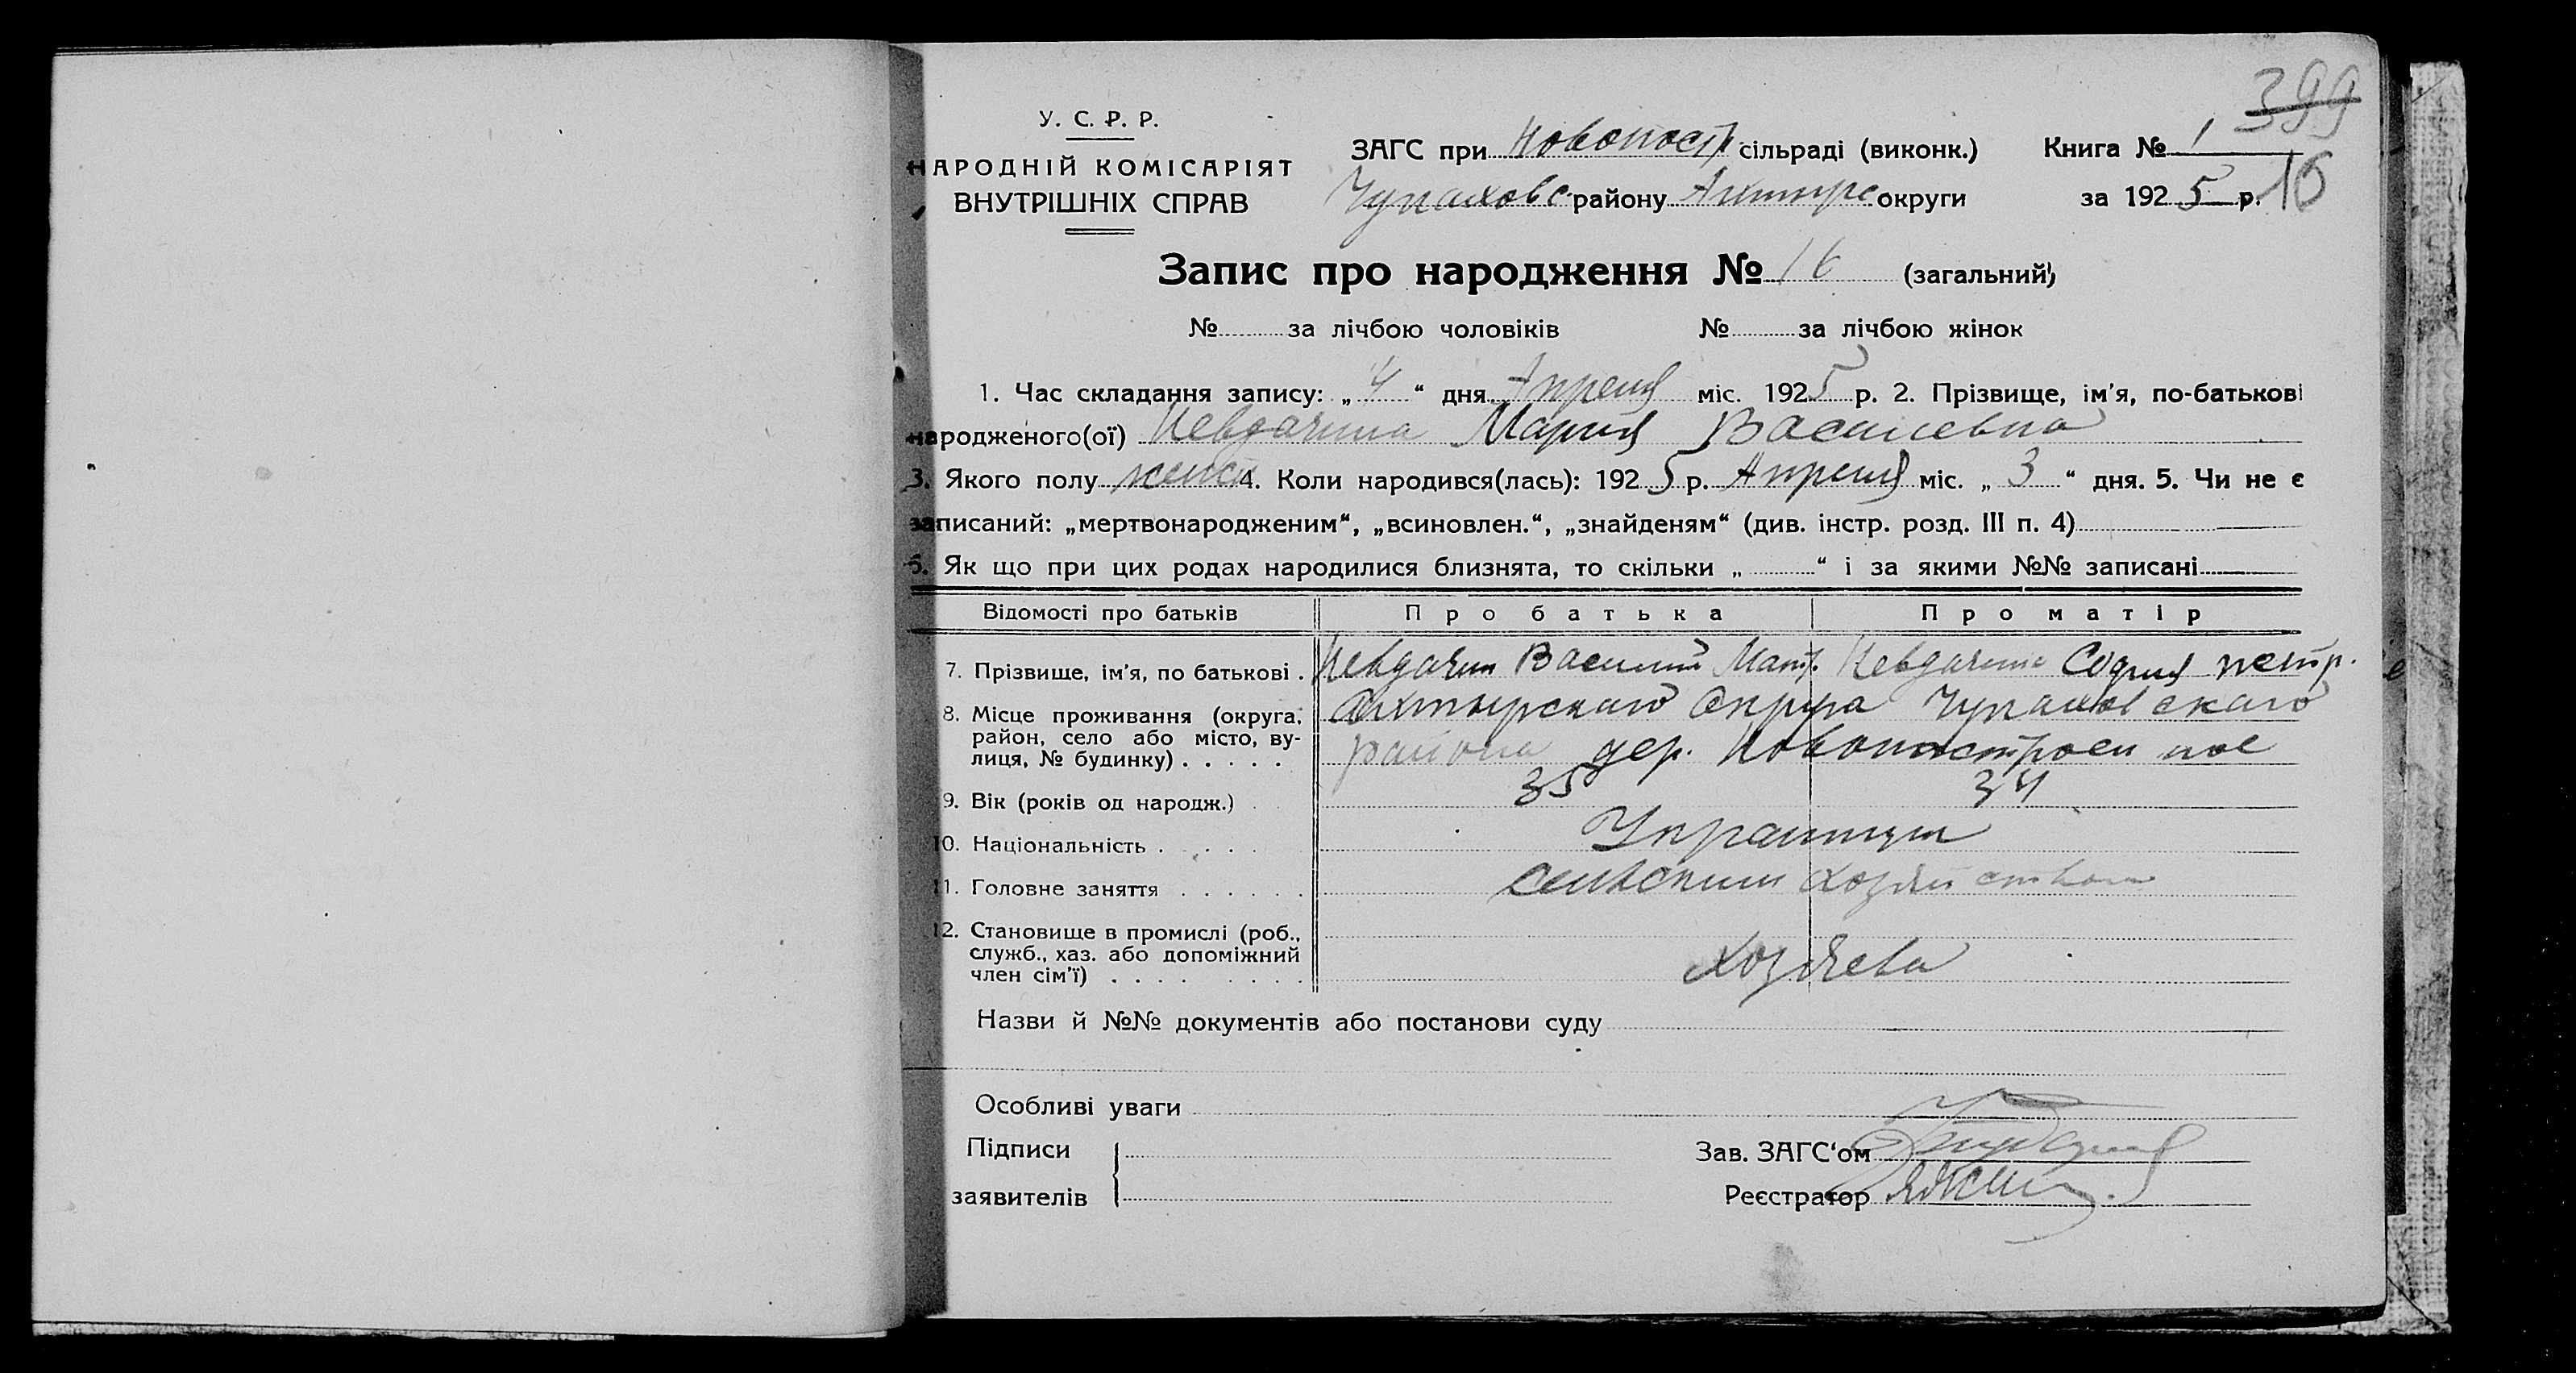 399
У. С. Р. Р.
НАРОДНІЙ КОМІСАРІЯТ
ВНУТРІШНІХ СПРАВ
ЗАГС при Новопостр сільраді (виконк.) Книга № 1
Чупаховс району Ахтырс округи за 1925 р. 16
Запис про народження № 16 (загальний)
№ за лічбою чоловіків № за лічбою жінок
1. Час складання запису: „4“ дня Апреля міс. 1925 р. 2. Прізвище, ім'я, по-батькові
народженого(ої) Невдачина Мария Василевна
3. Якого полу женск 4. Коли народився(лась): 1925 р. Апреля міс. „3“ дня. 5. Чи не є
записаний: „мертвонародженим“, „всиновлен.“, „знайденям“ (див. інстр. розд. III п. 4)
6. Як що при цих родах народилися близнята, то скільки „ “ і за якими №№ записані
Відомості про батьків Про батька Про матір
7. Прізвище, ім'я, по батькові . Невдачин Василий Мат. Невдачина София петр.
8. Місце проживання (округа, район, село або місто, вулиця, № будинку) . . . . . Ахтырскаго Округа Чупаховскаго
района дер. Новопостроен ное
9. Вік (років од народж.) 35 34
10. Національність . . . . . Украинцы
11. Головне заняття . . . . . . селским хозяйством
12. Становище в промислі (роб., служб., хаз. або допоміжний член сім'ї) . . . . Хозяева
Назви й №№ документів або постанови суду
Особливі уваги
Підписи
заявителів
Зав. ЗАГС‘ом
Реєстратор